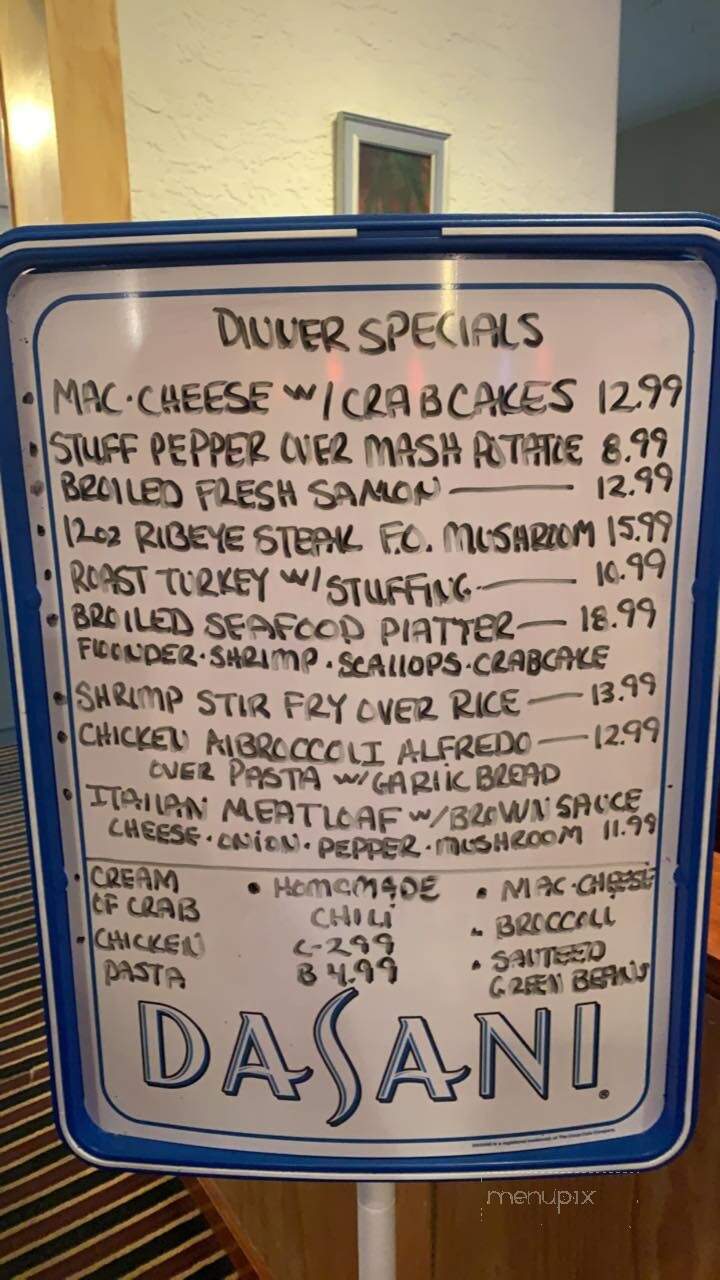 DINNER SPECIALS
• MAC·CHEESE W/CRAB CAKES 12.99
• STUFF PEPPER OVER MASH POTATOE 8.99
• BROILED FRESH SAMON — 12.99
• 12oz RIBEYE STEAK F.O. MUSHROOM 15.99
• ROAST TURKEY W/STUFFING — 10.99
• BROILED SEAFOOD PLATTER — 18.99
FLOUNDER·SHRIMP·SCALLOPS·CRABCAKE
• SHRIMP STIR FRY OVER RICE — 13.99
• CHICKEN AIBROCCOLI ALFREDO — 12.99
OVER PASTA W/GARLIC BREAD
• ITALIAN MEATLOAF W/BROWN SAUCE
CHEESE·ONION·PEPPER·MUSHROOM 11.99
• CREAM
OF CRAB
• CHICKEN
PASTA
• HOMEMADE
CHILI
C-299
B 4.99
• MAC·CHEESE
• BROCCOLI
• SAUTEED
GREEN BEANS
DASANI®
menupix